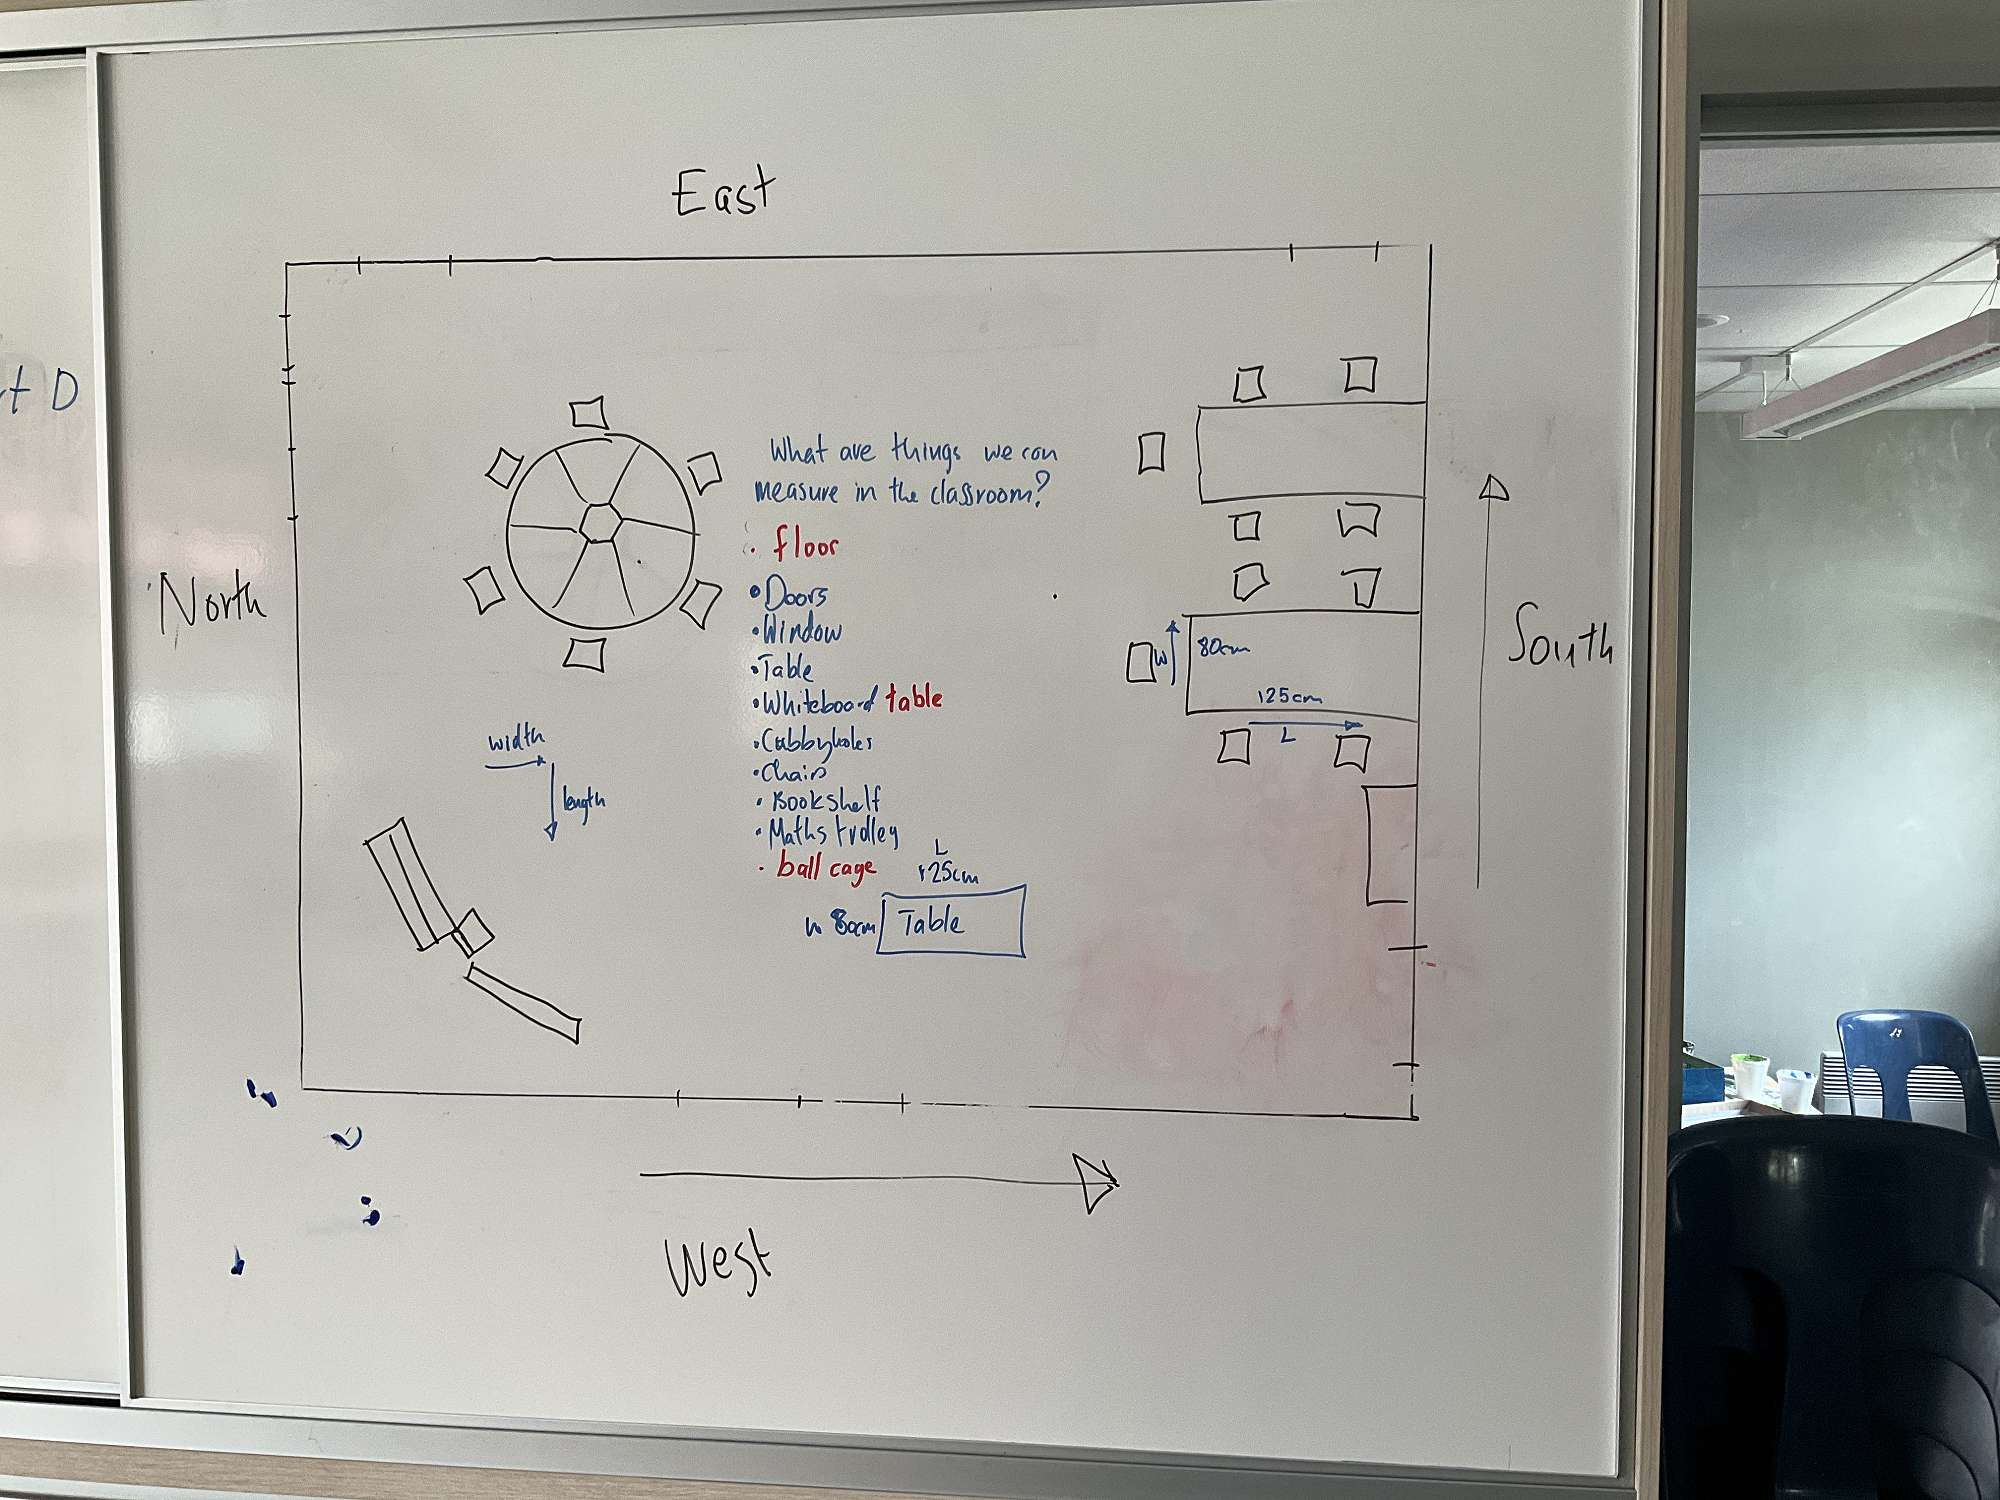 East
t D
What are things we can
measure in the classroom?
• floor
• Doors
• Window
• Table
• Whiteboard table
• Cubbyholes
• Chairs
• Bookshelf
• Maths trolley
• ball cage
L
125cm
w 80cm Table
North
width
length
W 80cm
125cm
L
South
West